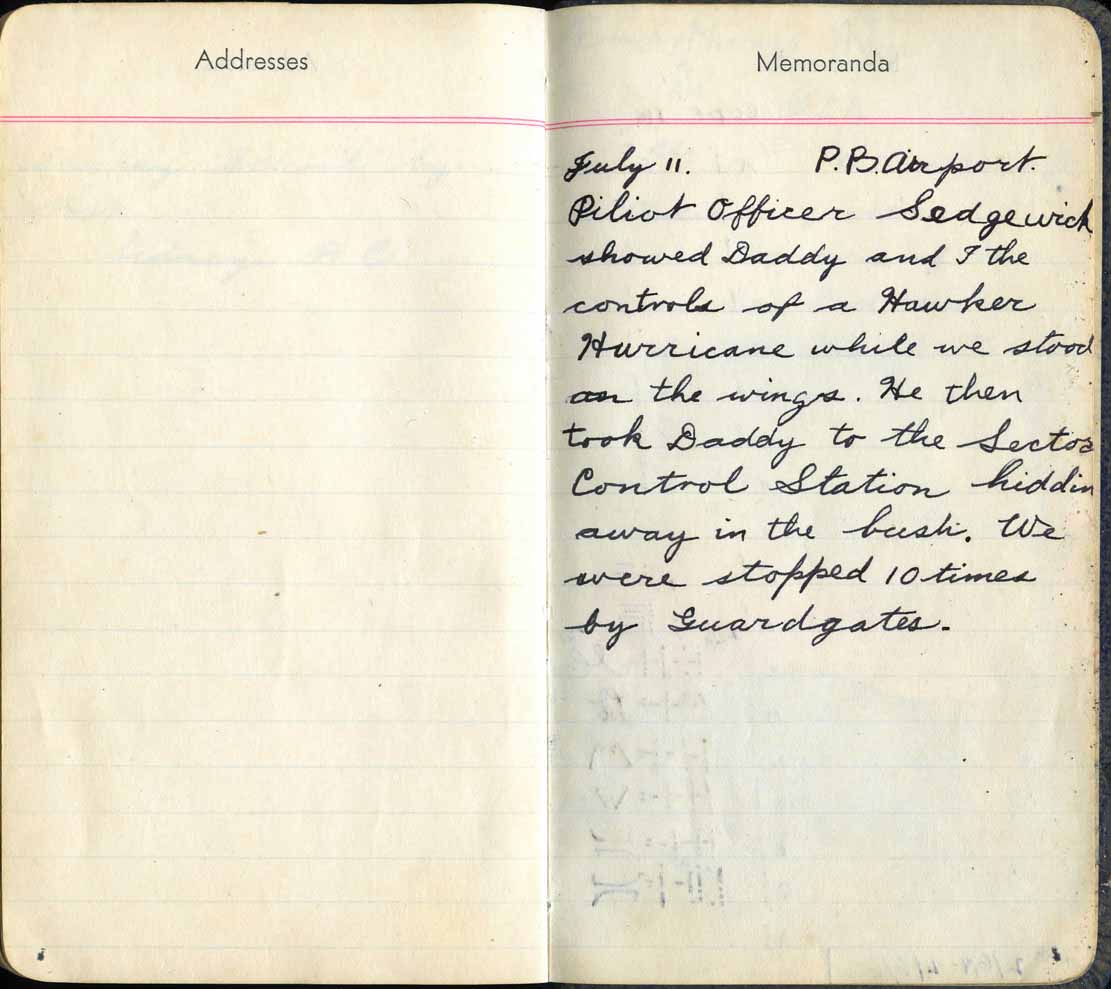 Addresses
Memoranda
July 11. P.B. Airport.
Piliot Officer Sedgewick
showed Daddy and I the
controls of a Hawker
Hurricane while we stood
on the wings. He then
took Daddy to the Sector
Control Station hiddin
away in the bush. We
were stopped 10 times
by Guardgates.